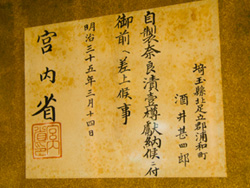 埼玉縣北足立郡浦和町
酒井甚四郎
自製奈良漬壹樽獻納候ニ付
御前ヘ差上候事
明治三十五年三月十四日
宮内省